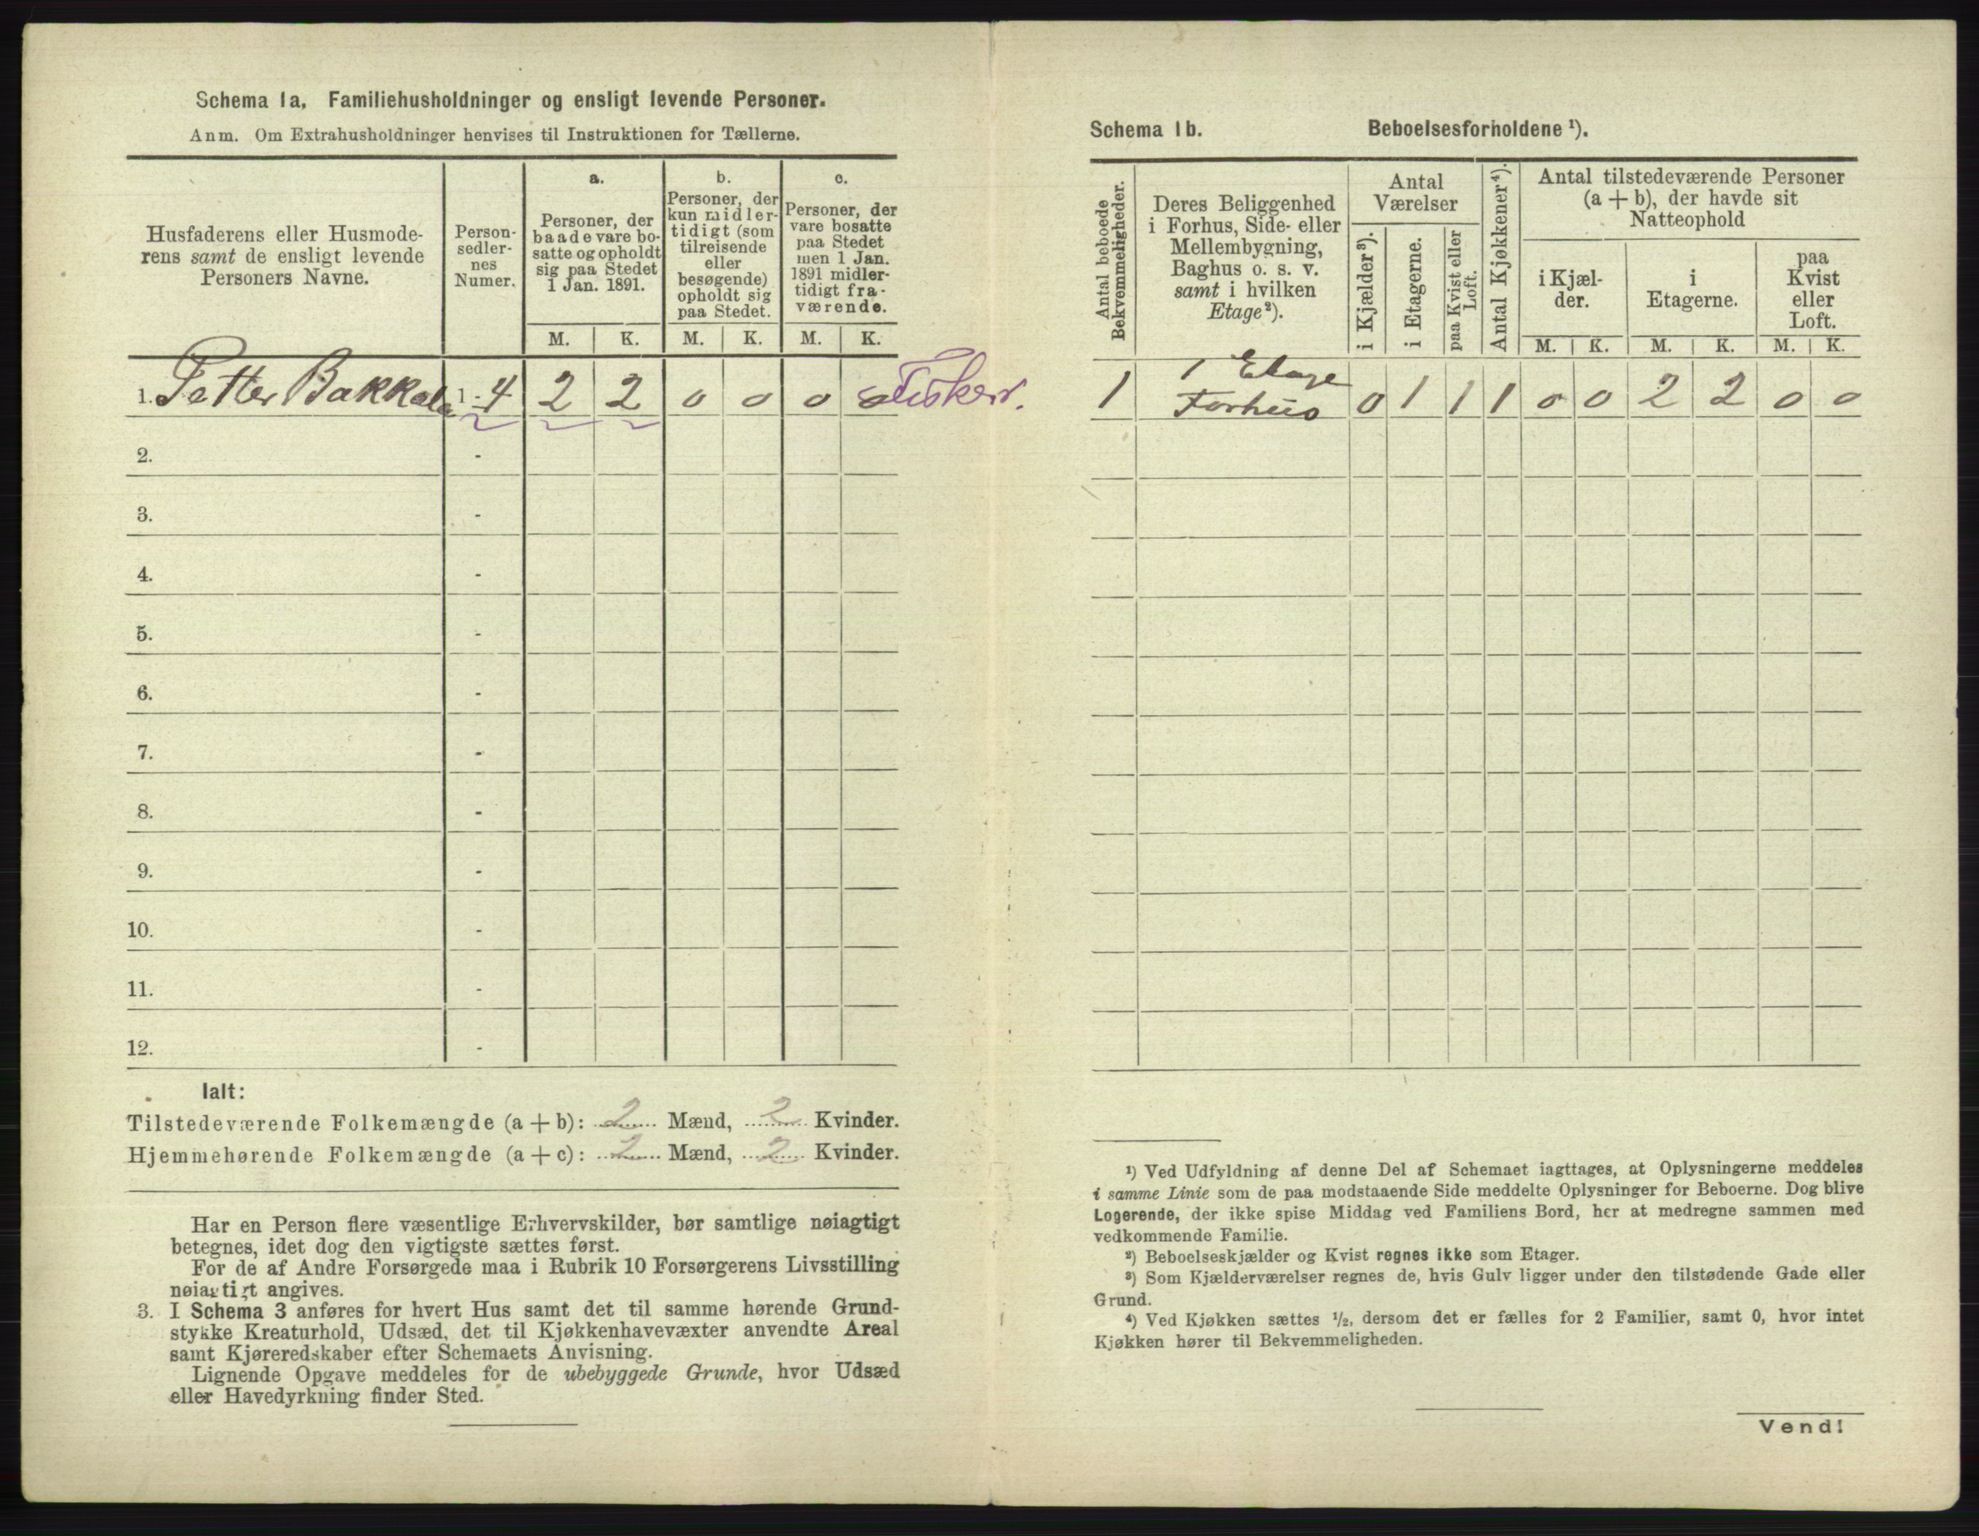 Schema 1a. Familiehusholdninger og ensligt levende Personer.
Anm. Om Extrahusholdninger henvises til Instruktionen for Tællerne.
Husfaderens eller Husmode-
rens samt de ensligt levende
Personers Navne.
Person-
sedler-
nes
Numer.
a.
Personer, der
baade vare bo-
satte og opholdt
sig paa Stedet
1 Jan. 1891.
b.
Personer, der
kun midler-
tidigt (som
tilreisende
eller
besøgende)
opholdt sig
paa Stedet.
c.
Personer, der
vare bosatte
paa Stedet
men 1 Jan.
1891 midler-
tidigt fra-
værende.
M. K. M. K. M. K.
1. Petter Bakkela 1 - 4 2 2 0 0 0 0 Fisker.
2. -
3. -
4. -
5. -
6. -
7. -
8. -
9. -
10. -
11. -
12. -
Ialt:
Tilstedeværende Folkemængde (a + b): 2 Mænd, 2 Kvinder.
Hjemmehørende Folkemængde (a + c): 2 Mænd, 2 Kvinder.
Har en Person flere væsentlige Erhvervskilder, bør samtlige nøiagtigt
betegnes, idet dog den vigtigste sættes først.
For de af Andre Forsørgede maa i Rubrik 10 Forsørgerens Livsstilling
nøiagtigt angives.
3. I Schema 3 anføres for hvert Hus samt det til samme hørende Grund-
stykke Kreaturhold, Udsæd, det til Kjøkkenhavevæxter anvendte Areal
samt Kjøreredskaber efter Schemaets Anvisning.
Lignende Opgave meddeles for de ubebyggede Grunde, hvor Udsæd
eller Havedyrkning finder Sted.
Schema 1b. Beboelsesforholdene ¹).
Antal beboede
Bekvemmeligheder.
Deres Beliggenhed
i Forhus, Side- eller
Mellembygning,
Baghus o. s. v.
samt i hvilken
Etage²).
Antal
Værelser
i Kjælder³).
i Etagerne.
paa Kvist eller
Loft.
Antal Kjøkkener⁴).
Antal tilstedeværende Personer
(a + b), der havde sit
Natteophold
i Kjæl-
der.
i
Etagerne.
paa
Kvist
eller
Loft.
M. K. M. K. M. K.
1 Etage
1 Forhus 0 1 1 1 0 0 2 2 0 0
¹) Ved Udfyldning af denne Del af Schemaet iagttages, at Oplysningerne meddeles
i samme Linie som de paa modstaaende Side meddelte Oplysninger for Beboerne. Dog blive
Logerende, der ikke spise Middag ved Familiens Bord, her at medregne sammen med
vedkommende Familie.
²) Beboelseskjælder og Kvist regnes ikke som Etager.
³) Som Kjælderværelser regnes de, hvis Gulv ligger under den tilstødende Gade eller
Grund.
⁴) Ved Kjøkken sættes ½, dersom det er fælles for 2 Familier, samt 0, hvor intet
Kjøkken hører til Bekvemmeligheden.
Vend!